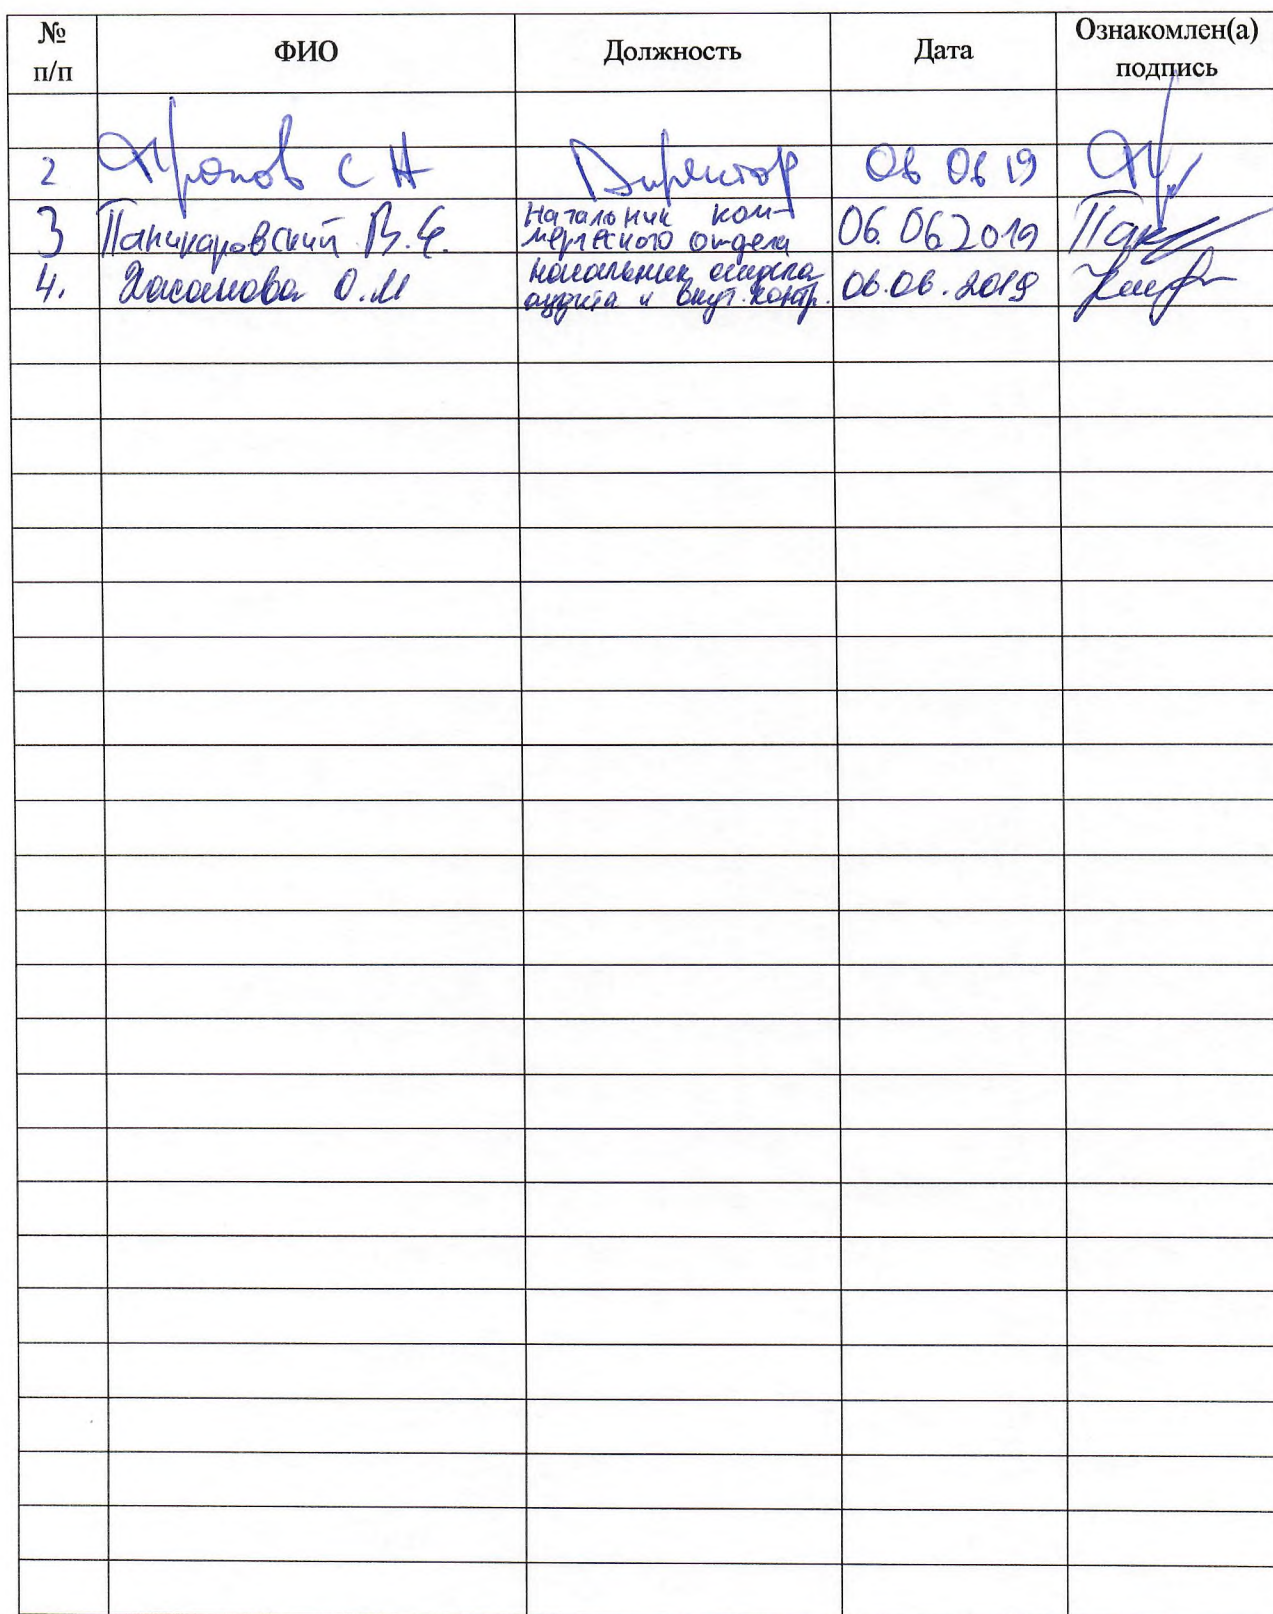 № п/п ФИО Должность Дата Ознакомлен(а) подпись
2 С Н Директор 06 06 19
3 В.Е. Начальник ком-
мерческого отдела 06.06 2019
4. Хасанова О.М начальник отдела
аудита и внут. контр. 06.06.2019